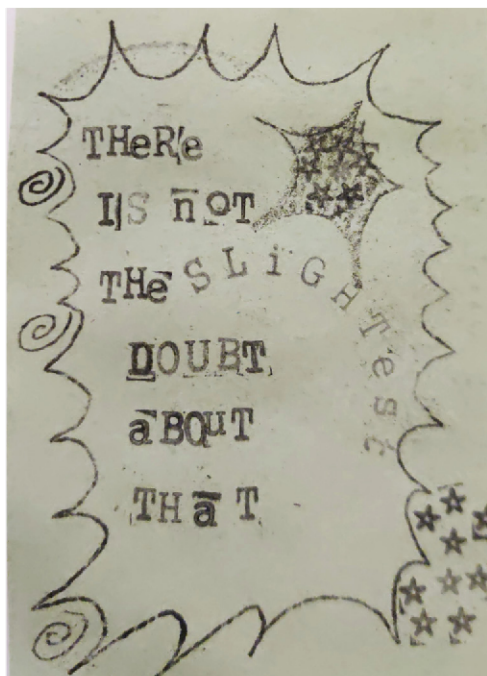 THeRe
IS nOT
THe SLiGHTest
DOUBT
aBOuT
THaT